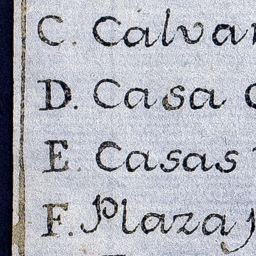 C. Calvar
D. Casa
E. Casas
F. Plaza y